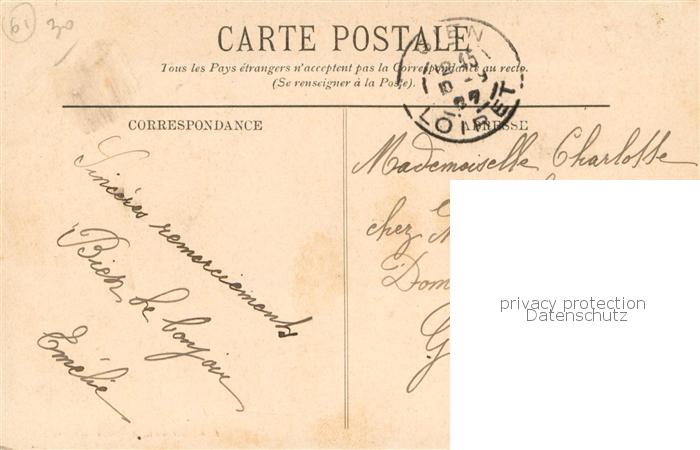 61 30
CARTE POSTALE
Tous les Pays étrangers n'acceptent pas la Correspondance au recto.
(Se renseigner à la Poste).
GIEN
LOIRET
CORRESPONDANCE
ADRESSE
Sincères remerciements
Bien le bonjour
Emélie
Mademoiselle Charlotte
chez
privacy protection
Datenschutz